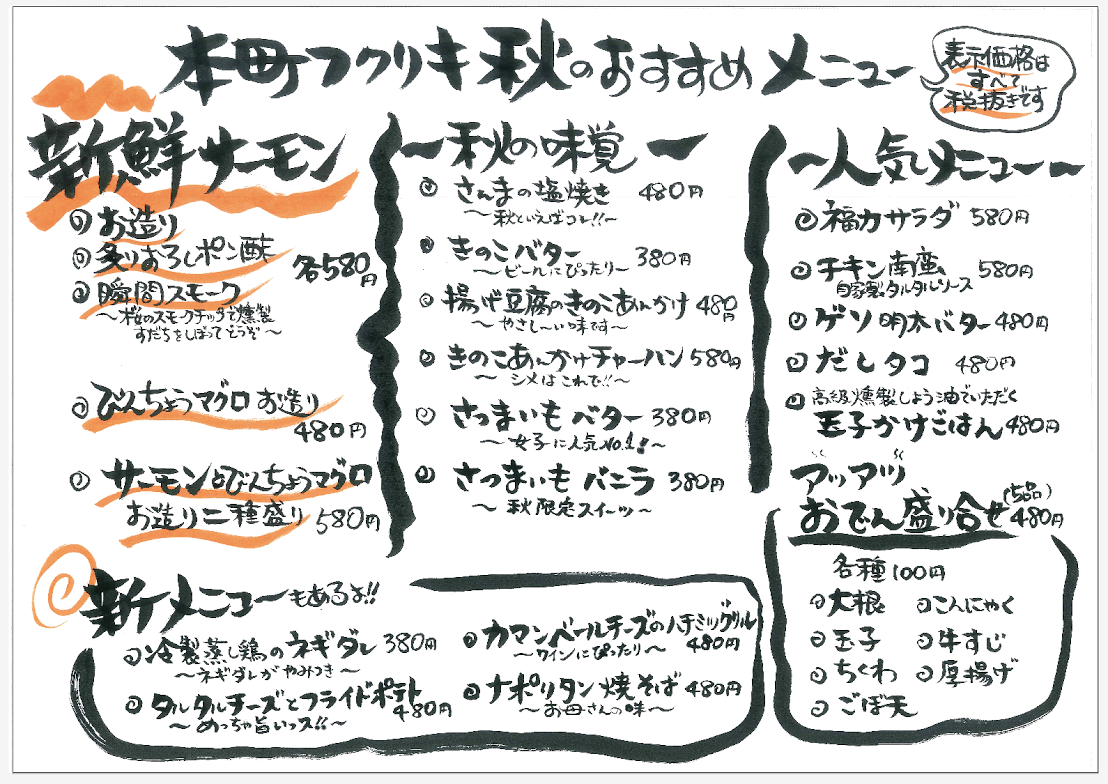 本町フクリキ 秋のおすすめ メニュー
表示価格は
すべて
税抜きです
新鮮サーモン
お造り
炙りおろしポン酢
瞬間スモーク
各580円
〜桜のスモークチップで燻製
すだちをしぼってどうぞ〜
びんちょうマグロ お造り
480円
サーモンとびんちょうマグロ
お造り二種盛り 580円
〜秋の味覚〜
さんまの塩焼き 480円
〜秋といえばコレ!!〜
きのこバター 380円
〜ビールにぴったり〜
揚げ豆腐のきのこあんかけ 480円
〜やさし〜い味です〜
きのこあんかけチャーハン 580円
〜シメはこれで!!〜
さつまいも バター 380円
〜女子に人気No.1!〜
さつまいも バニラ 380円
〜秋限定スイーツ〜
〜人気メニュー〜
福力サラダ 580円
チキン南蛮 580円
自家製タルタルソース
ゲソ明太バター 480円
だしタコ 480円
高級燻製しょう油でいただく
玉子かけごはん 480円
アツアツ
おでん盛り合せ (5品) 480円
各種100円
大根 こんにゃく
玉子 牛すじ
ちくわ 厚揚げ
ごぼ天
新メニューもあるよ!!
冷製蒸し鶏のネギダレ 380円
〜ネギダレがやみつき〜
タルタルチーズとフライドポテト
480円
〜めっちゃ旨いっス!!〜
カマンベールチーズのハチミツグリル
〜ワインにぴったり〜 480円
ナポリタン焼そば 480円
〜お母さんの味〜